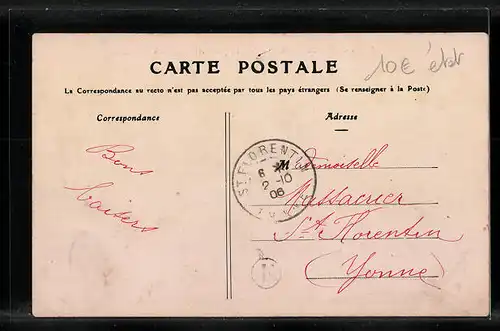 10€ état
CARTE POSTALE
La Correspondance au recto n'est pas acceptée par tous les pays étrangers (Se renseigner à la Poste)
Correspondance
Adresse
Bons
baisers
ST FLORENTIN
6
2 -10
06
YONNE
Mademoiselle
Massacrier
St Florentin
(Yonne)